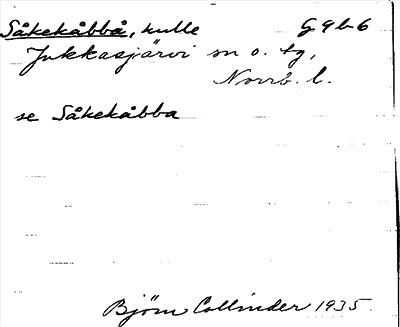 Såkekåbbå, kulle G9b6
Jukkasjärvi sn o. tg,
Norrb. l.
se Såkekåbba
Björn Collinder 1935